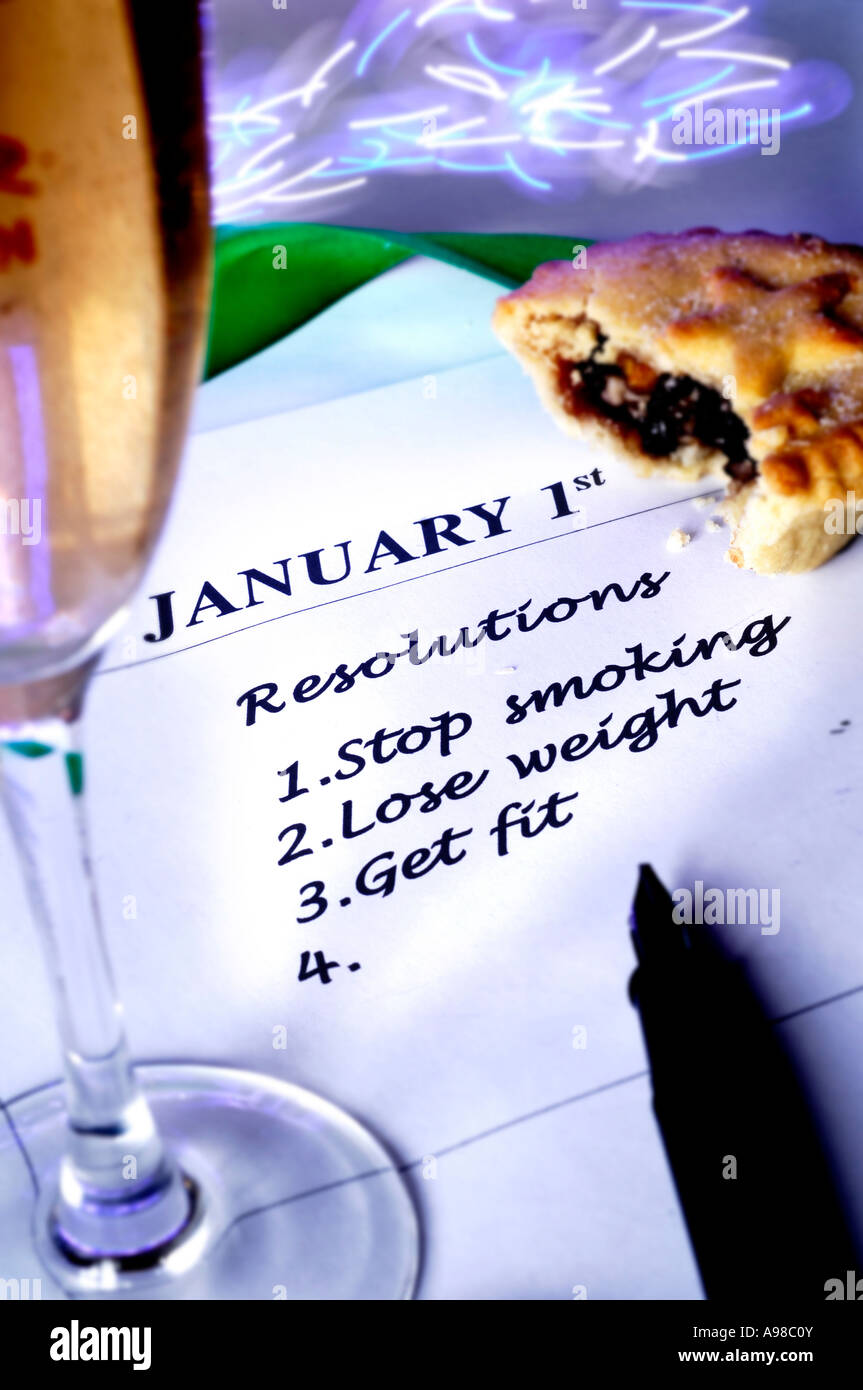 JANUARY 1st
Resolutions
1.Stop smoking
2.Lose weight
3.Get fit
4.
alamy
Image ID: A98C0Y
www.alamy.com